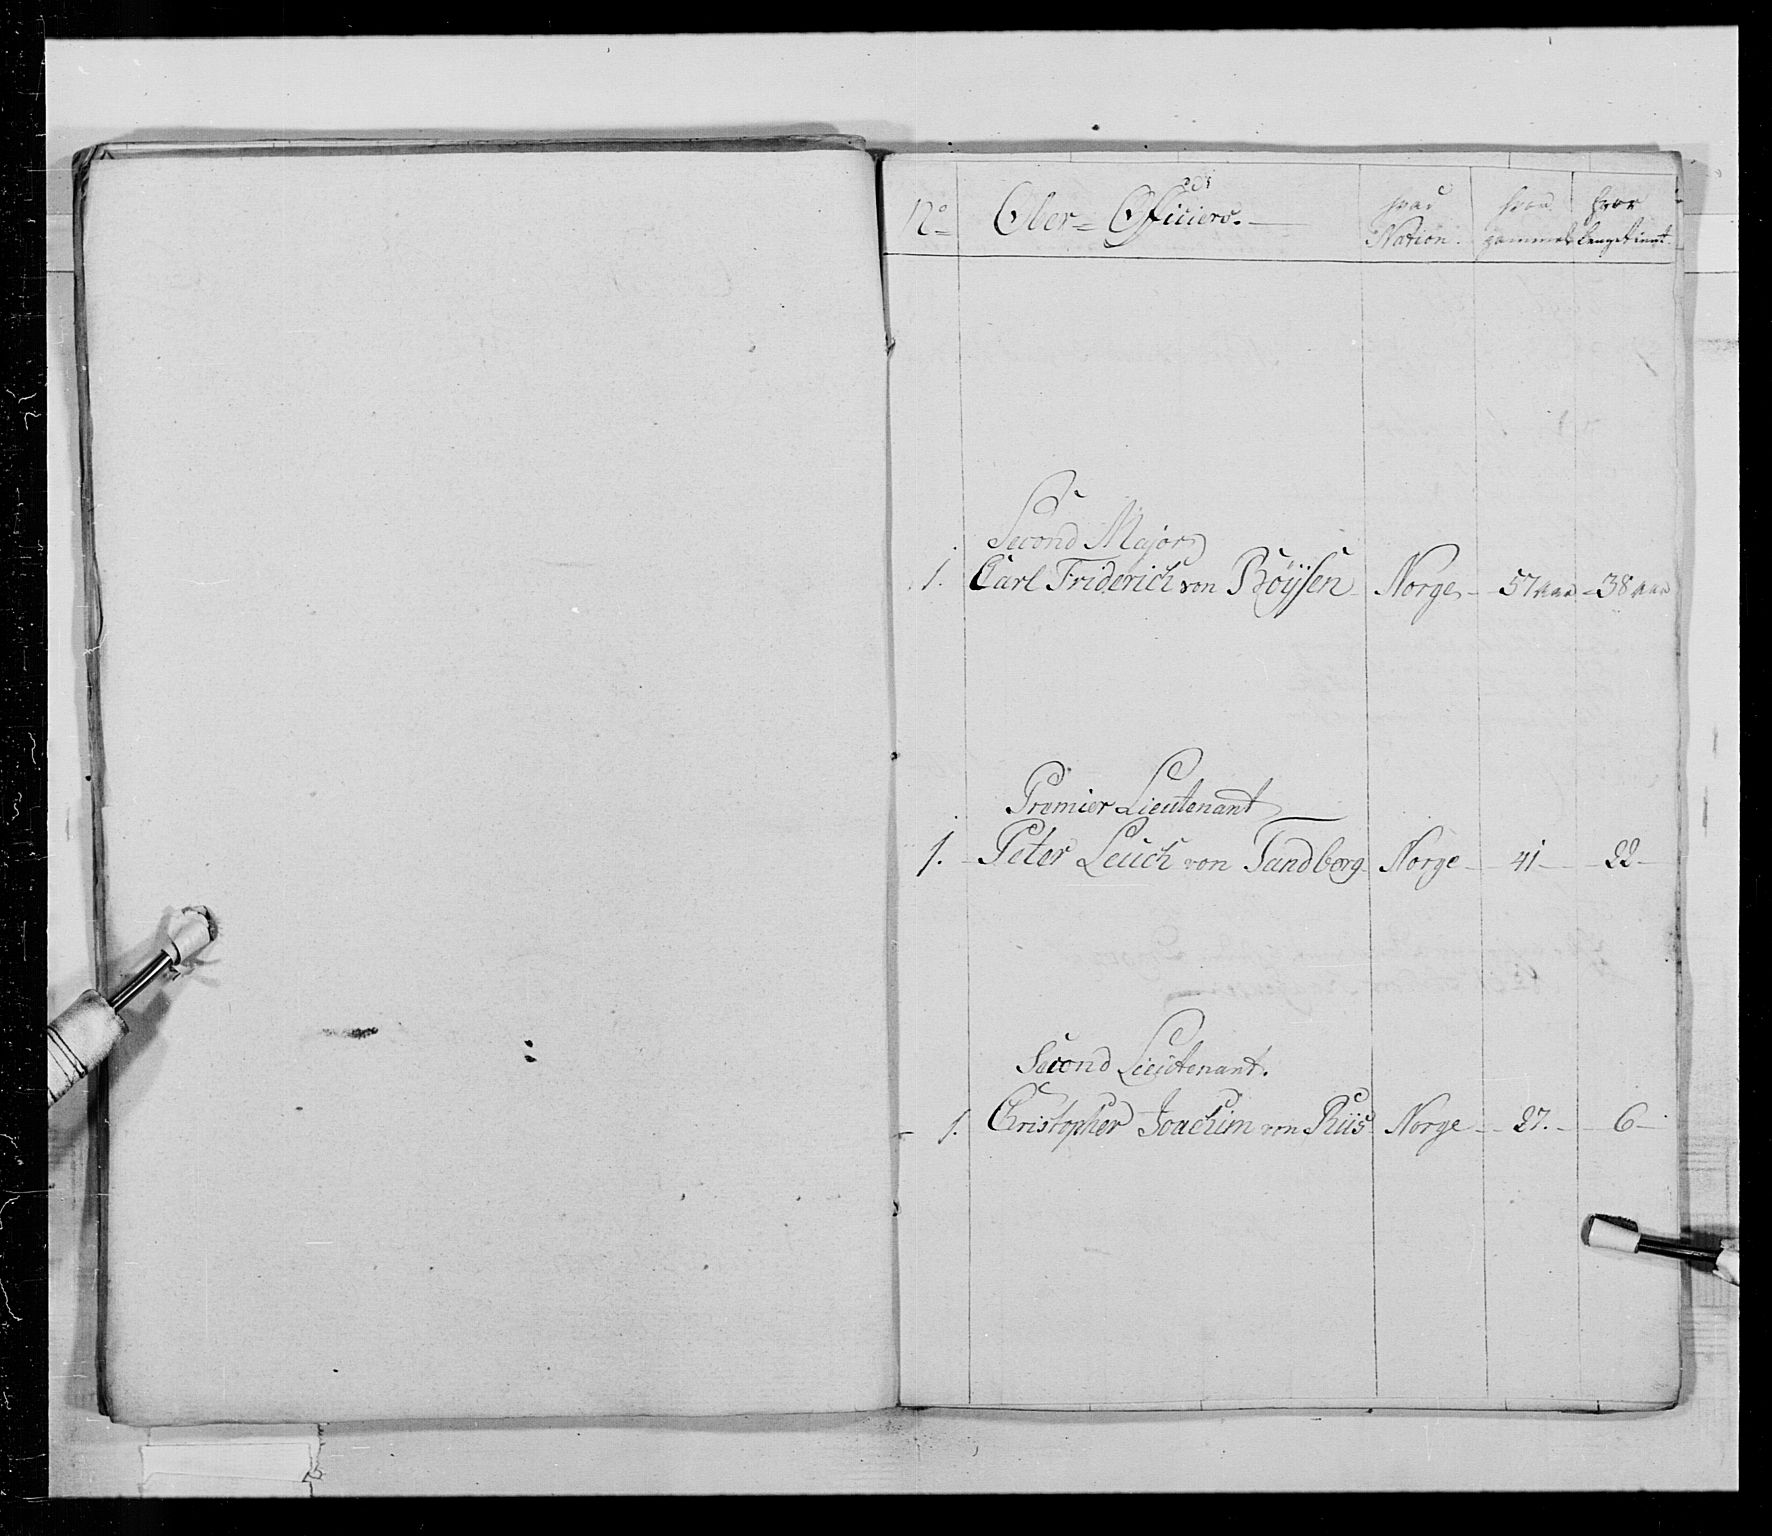 No Ober- Officiers. hvad Nation. hvor gammel hvor længe tient.
Second Major
1. Carl Friderich von Böÿsen Norge 57 aar 38 aar
Premier Lieutenant
1. Peter Leuch von Tandberg Norge 41 22
Second Lieutenant.
1. Christopher Joachim von Riis Norge 27. 6